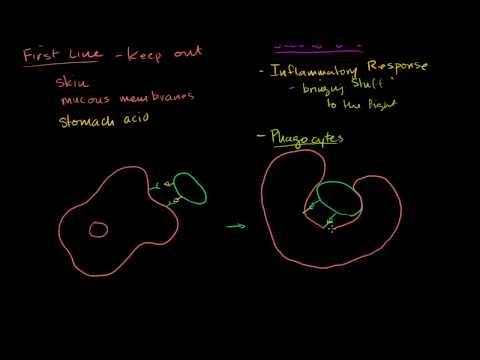 First Line - Keep out
skin
mucous membranes
stomach acid
- Inflammatory Response
- bringing "stuff"
to the fight
- Phagocytes